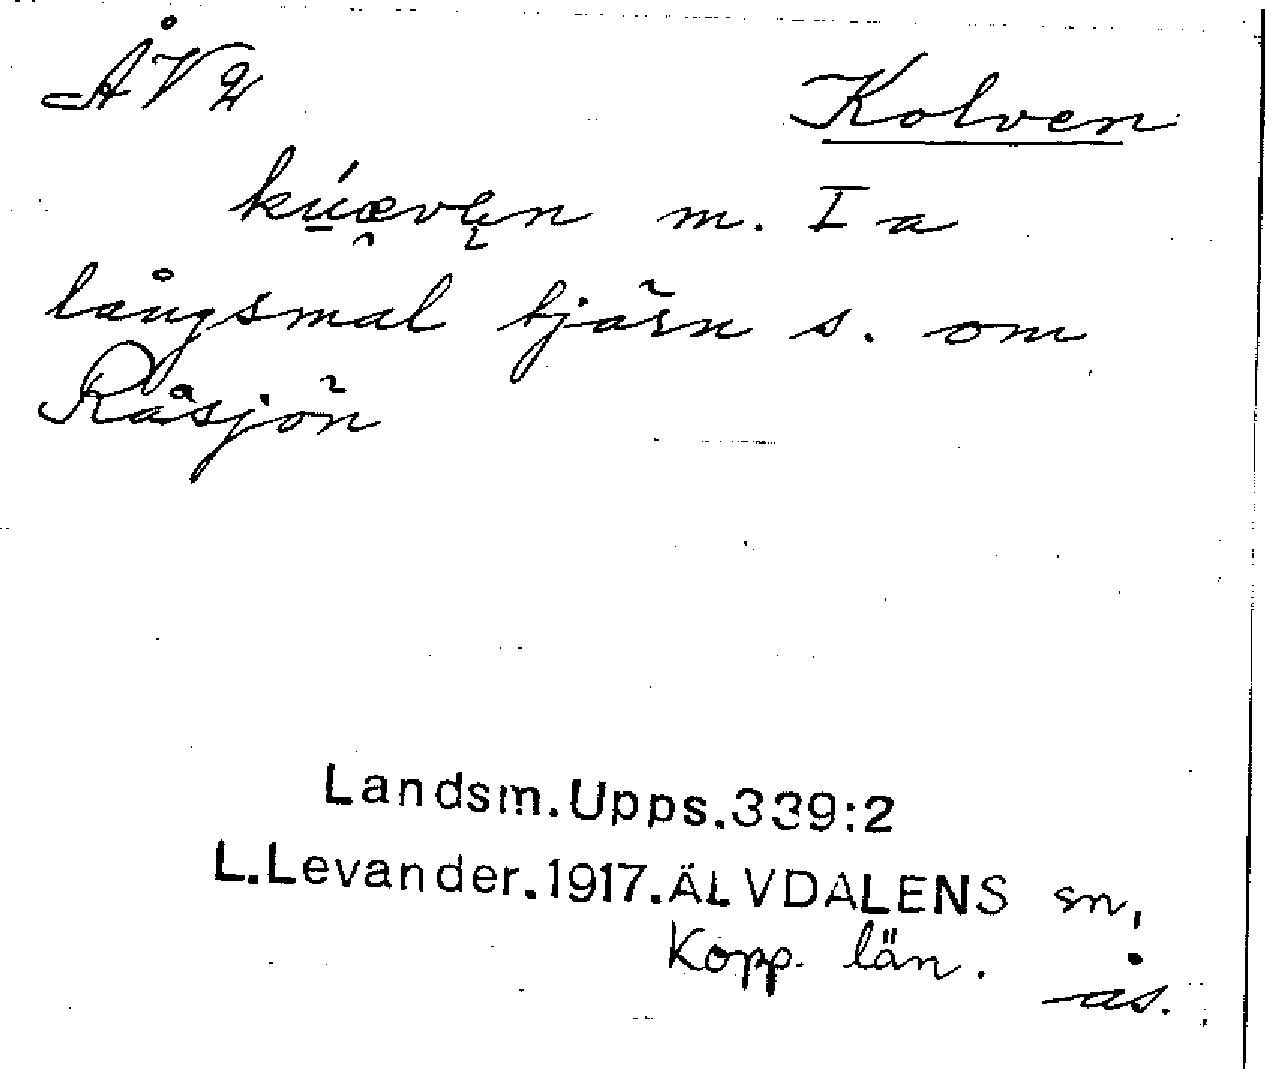 ÅV2
Kolven
kúævęn m. I a
långsmal tjärn s. om
Råsjön
Landsm.Upps.339:2
L.Levander.1917.ÄLVDALENS sn,
Kopp. län.
ås.